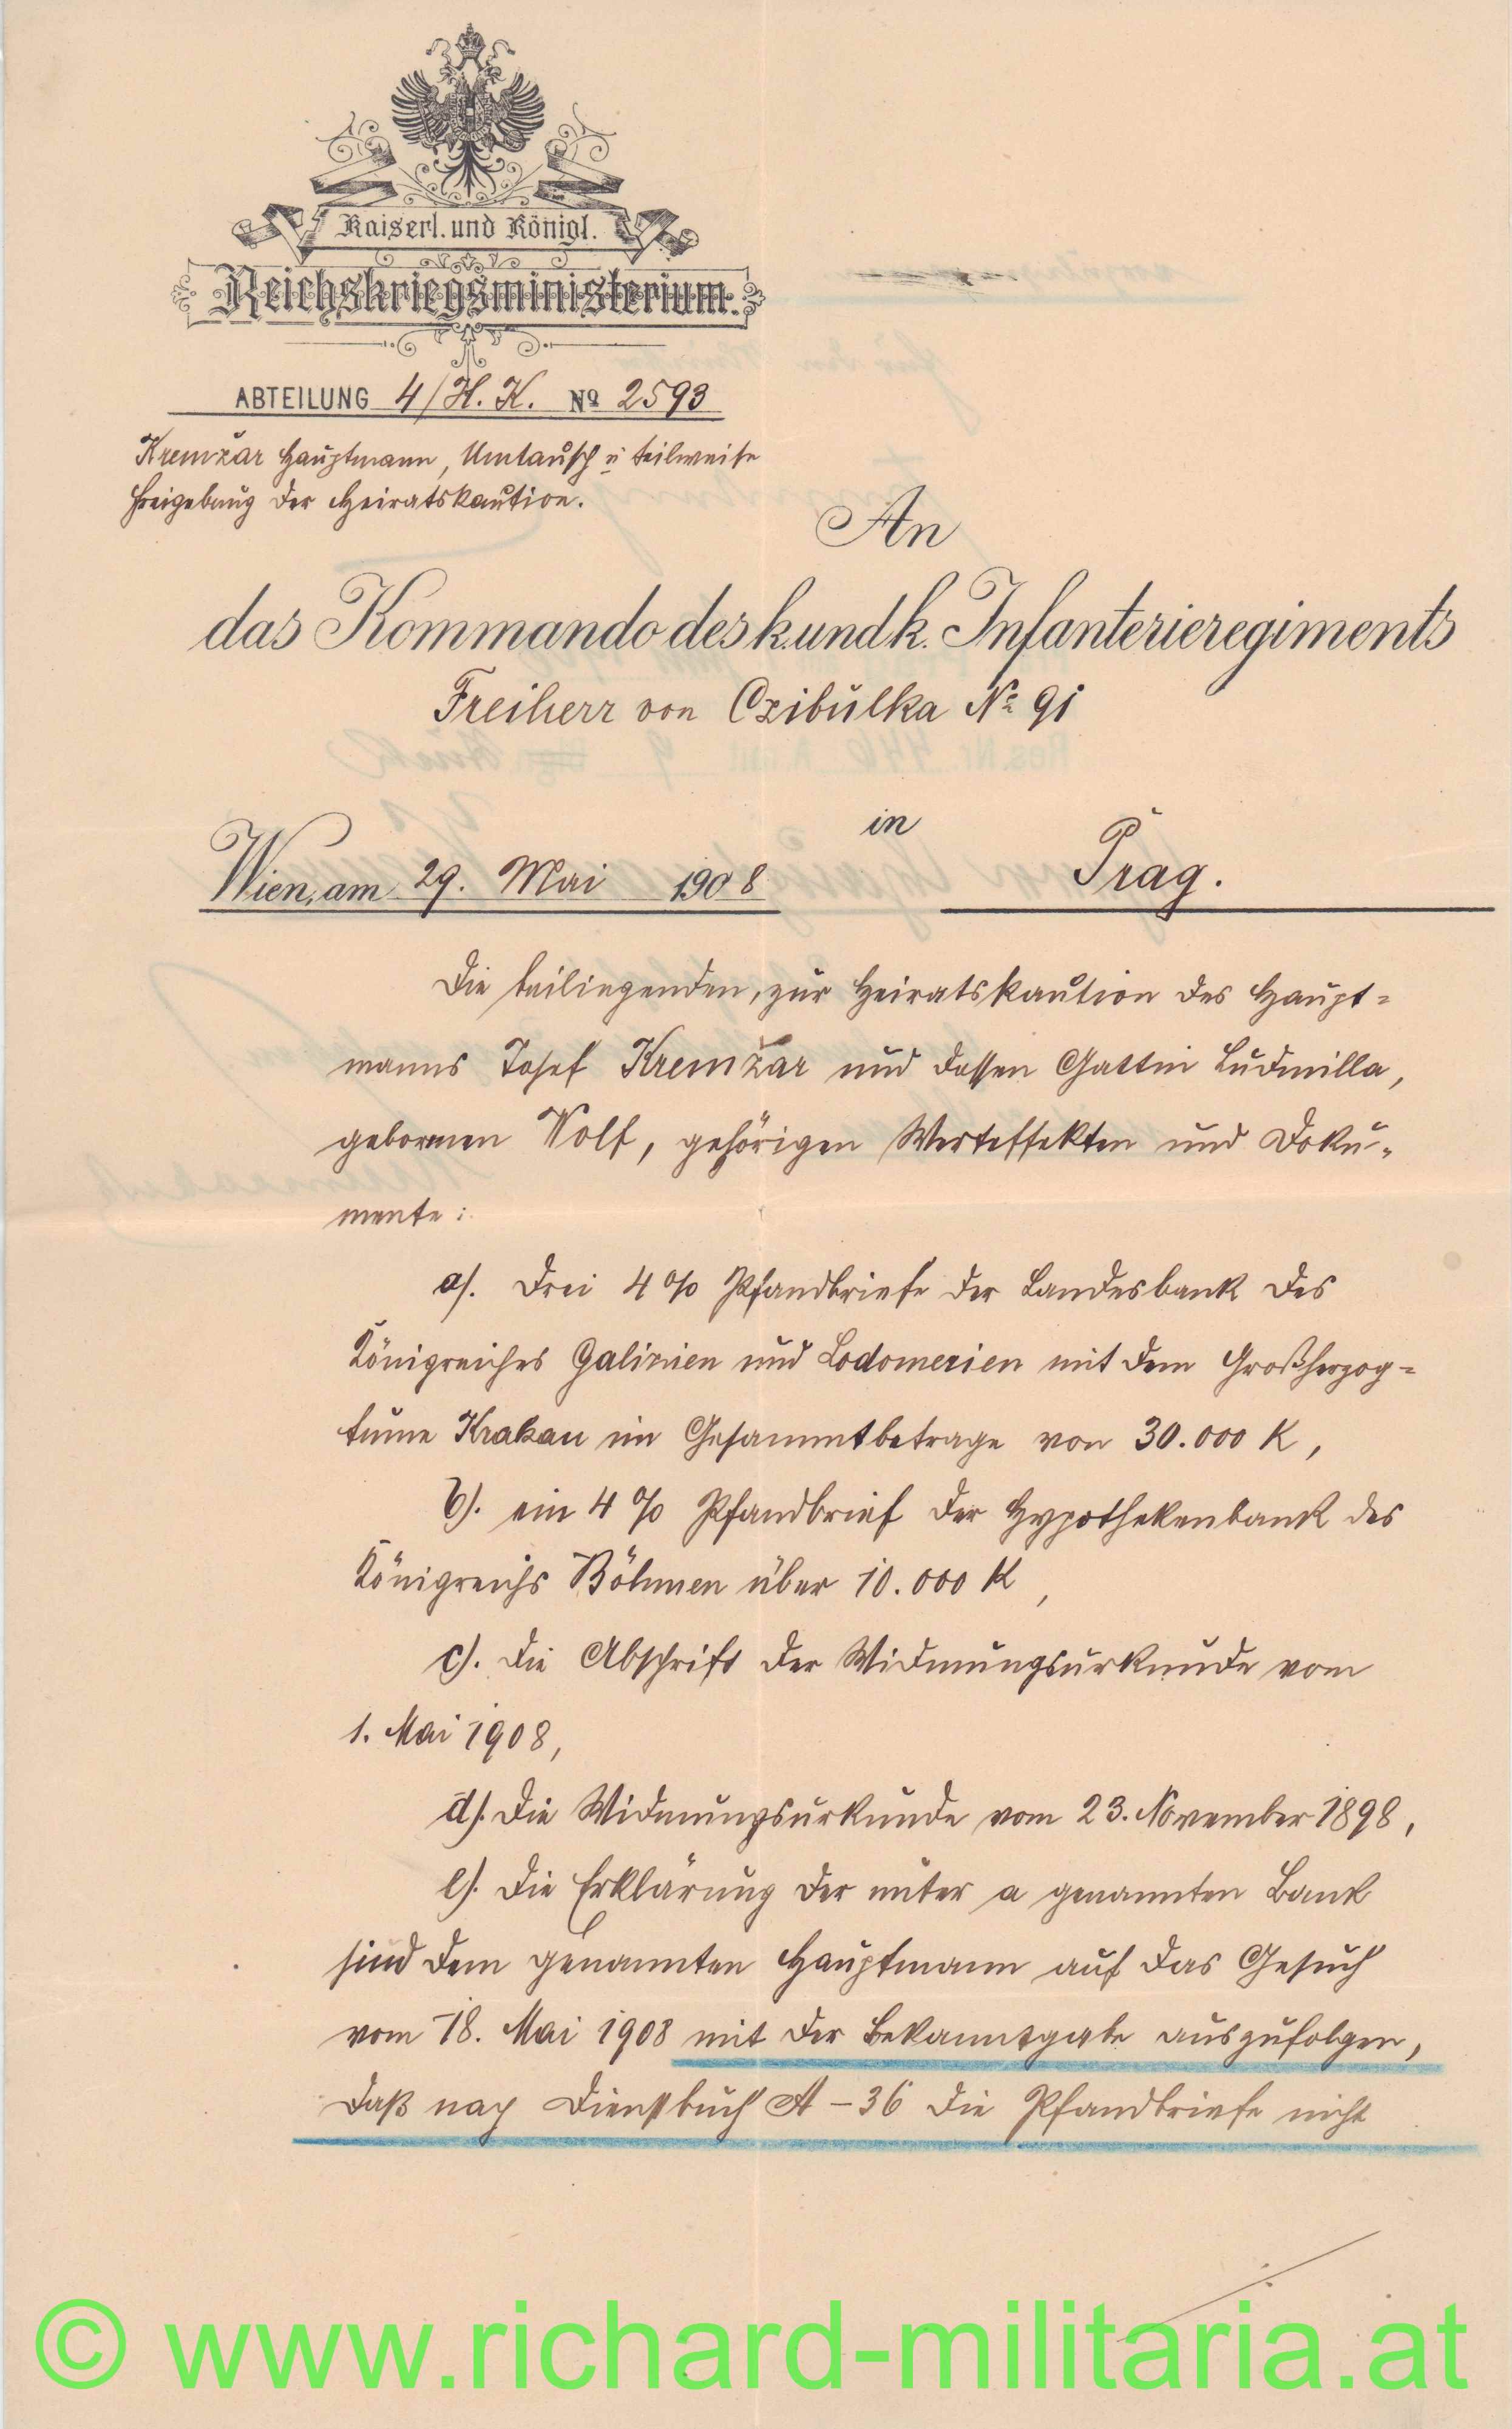 Kaiserl. und Königl.
Reichskriegsministerium.
ABTEILUNG 4/H. K. No 2593
Kremžar Hauptmann, Umtausch u teilweise
Freigebung der Heiratskaution.
An
das Kommando des k. und k. Infanterieregiments
Freiherr von Czibulka No 91
in
Wien, am 29. Mai 1908 Prag.
Die beiliegenden, zur Heiratskaution des Haupt=
manns Josef Kremžar und dessen Gattin Ludmilla,
gebornen Wolf, gehörigen Werteffekten und Doku=
mente:
a). drei 4% Pfandbriefe der Landesbank des
Königreiches Galizien und Lodomerien mit dem Großherzog=
tume Krakau im Gesammtbetrage von 30.000 K,
b). ein 4% Pfandbrief der Hypothekenbank des
Königreichs Böhmen über 10.000 K,
c). die Abschrift der Widmungsurkunde vom
1. Mai 1908,
d). die Widmungsurkunde vom 23. November 1898,
e). die Erklärung der unter a genannten Bank
sind dem genannten Hauptmann auf das Gesuch
vom 18. Mai 1908 mit der Bekanntgabe auszufolgen,
daß nach Dienstbuch A-36 die Pfandbriefe nicht
© www.richard-militaria.at